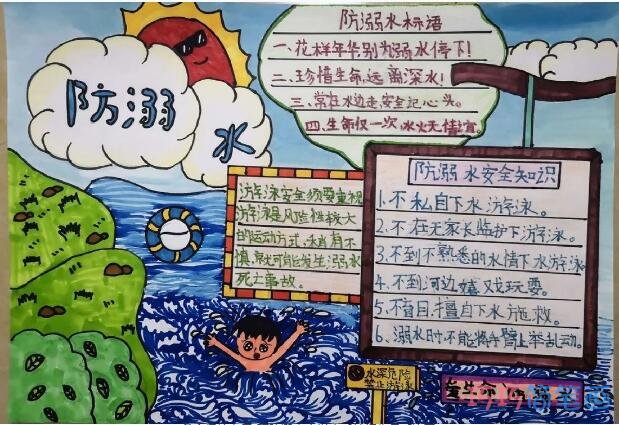 防溺水
防溺水标语
一、花样年华别为溺水停下!
二、珍惜生命,远离深水!
三、常在水边走,安全记心头。
四、生命仅一次,水火无情谊。
游泳安全须要重视
游泳是风险性极大
的运动方式,稍有不
慎,就可能发生溺水
死亡事故。
防溺水安全知识
1.不私自下水游泳。
2.不在无家长监护下游泳。
3.不到不熟悉的水情下水游泳
4.不到河边嬉戏玩耍。
5.不盲目擅自下水施救。
6、溺水时不能将手臂上举乱动。
水深危险
禁止游泳
生命